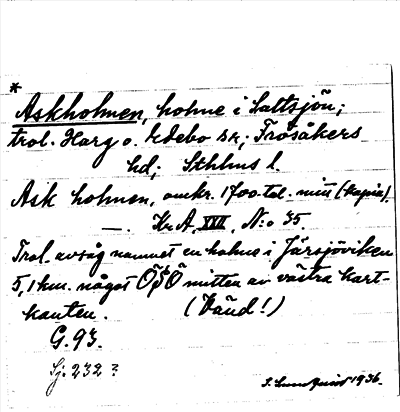 *
Askholmen, holme i Saltsjön;
trol. Harg o. Edebo sn; Frösåkers
hd; Sthlms l.
Ask holmen, omkr. 1700-tal. mitt (kopia).
—. Kr. A. XVII, N:o 35.
Trol. avsåg namnet en holme i Järsjöviken
5,1 km. något ÖSÖ mitten av västra kart-
kanten. (Vänd!)
G. 93.
Sj. 232?
S. Lundquist 1936.